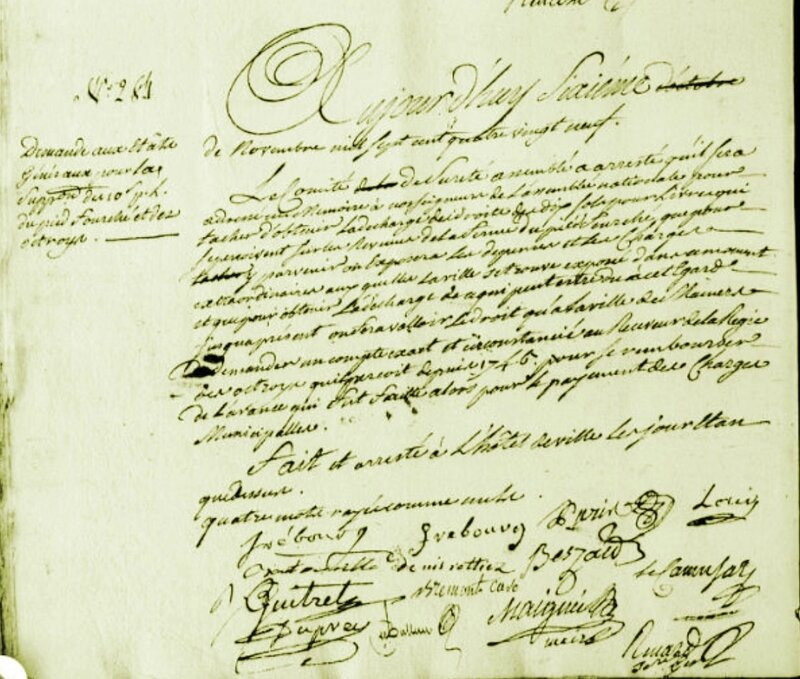 N.° 264
Demande aux Etats
Généraux pour la
Suppr.on des 10 s. p. L.
du pied fourché et des
octroys.
Aujourd'huy Sixiéme d'octobre
de Novembre mil sept cent quatre vingt neuf.
Le Comité de Sureté assemblé a arresté qu'il sera
adressé un Mémoire à nosseigneurs de L'assemblée nationale pour
tacher d'obtenir La décharge des droits des dix sols pour Livre qui
se perçoivent sur les Revenus de la ferme du pied fourché, que pour
y parvenir on Exposera les dépenses et Les Charges
extraordinaires aux quelles La ville se trouve exposée dans ce moment
et que pour obtenir La decharge de ce qui peut etre dû à cet Egard
jusqu'à présent on fera valloir Le droit qu'a la ville de
Demander un compte exact et circonstancié au Receveur de la Régie
des octroys qu'il perçoit depuis 174 pour se rembourser
de L'avance qui s'est faitte alors pour le payement des Charges
Municipalles.
Fait et arresté à L'hôtel de ville les jour et an
que dessus.
quatre mots rayés comme nuls.
Trébourg Trebourg Loüis
Bezard
Guitrel Bremont curé
Dupré Maigni
maire